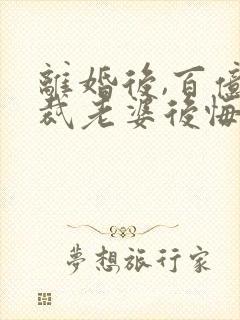 離婚後,百億
裁老婆後悔
夢想旅行家